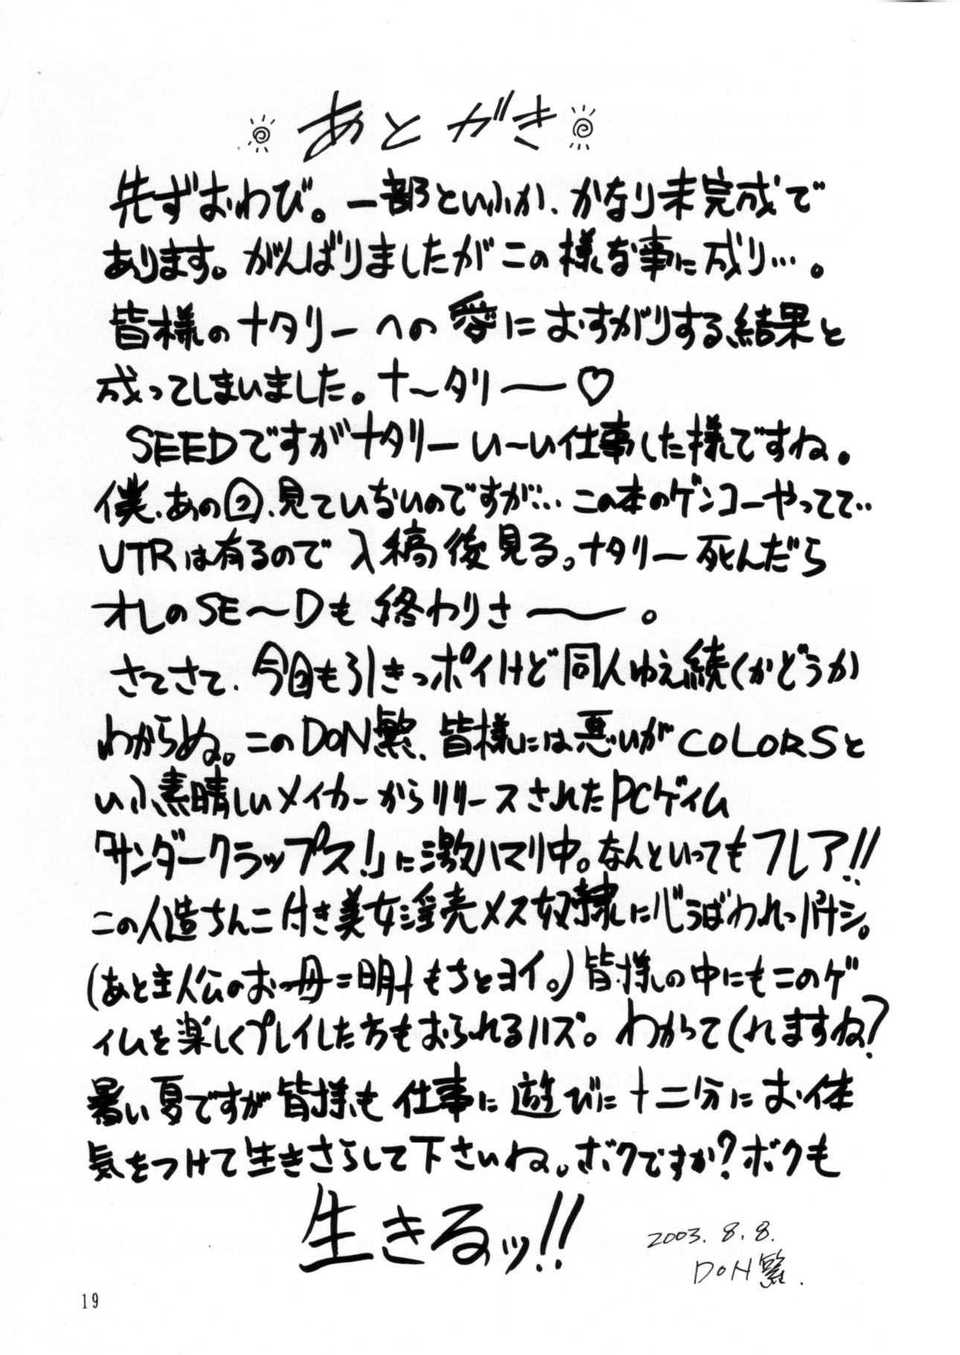 あとがき
先ずおわび。一部といふか、かなり未完成で
あります。がんばりましたがこの様な事に成り…。
皆様のナタリーへの愛におすがりする結果と
成ってしまいました。ナ〜タリー〜♡
SEEDですがナタリーい〜い仕事した様ですね。
僕、あの回、見ていないのですが…この本のゲンコーやってて‥
VTRは有るので入稿後見る。ナタリー死んだら
オレのSE〜Dも終わりさ〜。
さてさて、今回も引きっポイけど同人ゆえ続くかどうか
わからぬ。このDoN繁、皆様には悪いがCOLORSと
いふ素晴しいメイカーからリリースされたPCゲィム
「サンダークラップス!」に激ハマリ中。なんといってもフレア!!
この人造ちんこ付き美女淫売メス奴隷に心うばわれっパナシ。
(あと主人公のお母ニ明もちとヨイ。)皆様の中にもこのゲ
ィムを楽しくプレイした方もおられるハズ。わかってくれますね?
暑い夏ですが皆様も仕事に遊びに十二分にお体
気をつけて生きさらして下さいね。ボクですか?ボクも
生きるッ!!
2003.8.8.
DoN繁.
19